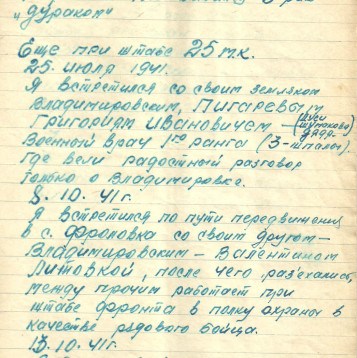 „дураком"
Еще при штабе 25 м.к.
25. июля 1941.
Я встретился со своим земляком
Владимировским, Пигаревым
Григорием Ивановичем — (Дуси
Шутиковой
дядя.
Военный врач 1го ранга (3-шпалы).
Где вели радостный разговор
только о Владимировке.
8. 10. 41г.
Я встретился по пути передвижения
в с. Фроловка со своим другом —
Владимировским — Валентином
Литовкой, после чего раз'ехались,
между прочим работает при
штабе фронта в полку охраны в
качестве рядового бойца.
13. 10. 41г.